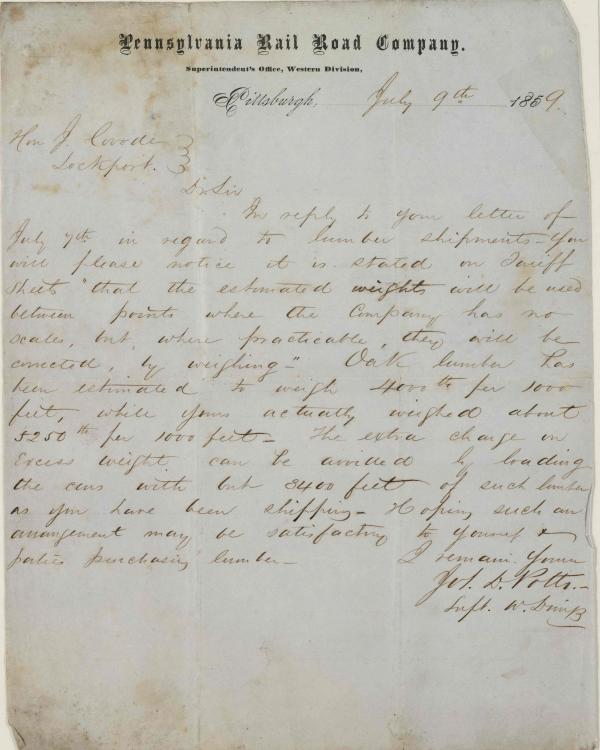 Pennsylvania Rail Road Company.
Superintendent's Office, Western Division,
Pittsburgh, July 9th 1859.
Hon J. Covode
Lockport.
Dr Sir
In reply to your letter of
July 7th in regard to lumber shipments - You
will please notice it is stated on Tariff
Sheets "that the estimated weights will be used
between points where the Company has no
scales, but, where practicable, they will be
corrected, by weighing -" Oak lumber has
been estimated to weigh 4000 lbs per 1000
feet, while yours actually weighed about
5250 lbs per 1000 feet - The extra charge on
Excess weight can be avoided by loading
the cars with but 3400 feet of such lumber
as you have been shipping - Hoping such an
arrangement may be satisfactory to yourself &
parties purchasing lumber -
I remain Yours
Jos. D. Potts -
Supt. W. Div